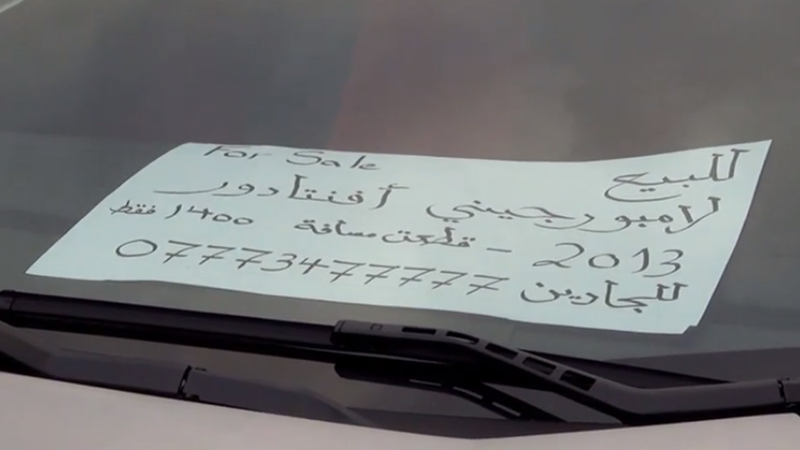 For Sale
للبيع
لامبورجيني أفنتادور
2013 - قطعت مسافة 1400 فقط
للجادين 07773477777